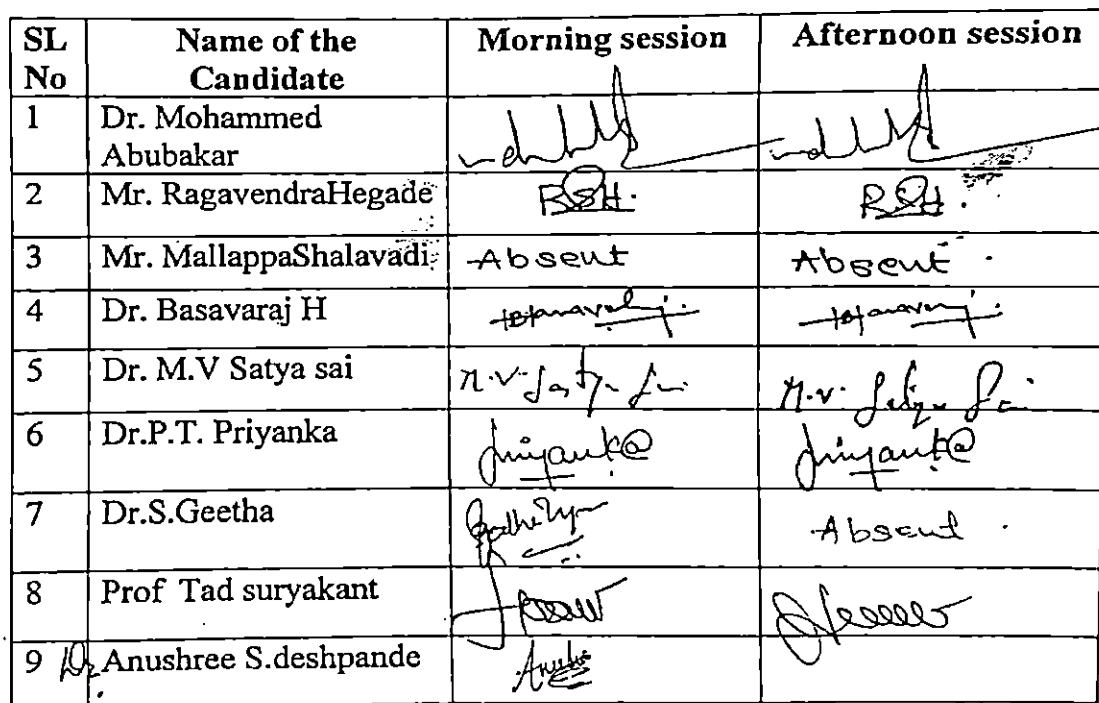 SL No Name of the Candidate Morning session Afternoon session
1 Dr. Mohammed Abubakar
2 Mr. RagavendraHegade RSH. RSH.
3 Mr. MallappaShalavadi Absent Absent.
4 Dr. Basavaraj H
5 Dr. M.V Satya sai M.V. Satya Sai M.V. Satya Sai
6 Dr.P.T. Priyanka Priyanka Priyanka
7 Dr.S.Geetha Absent.
8 Prof Tad suryakant
9 Dr. Anushree S.deshpande